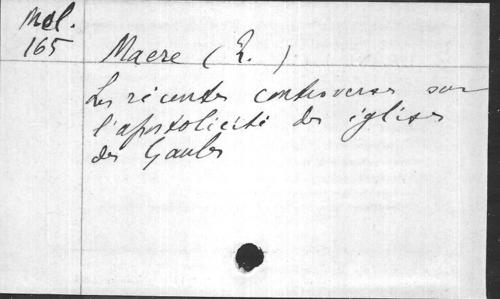 Mel.
165
Macre (E.)
Les récentes controverses sur
l'apostolicité des églises
des Gaules